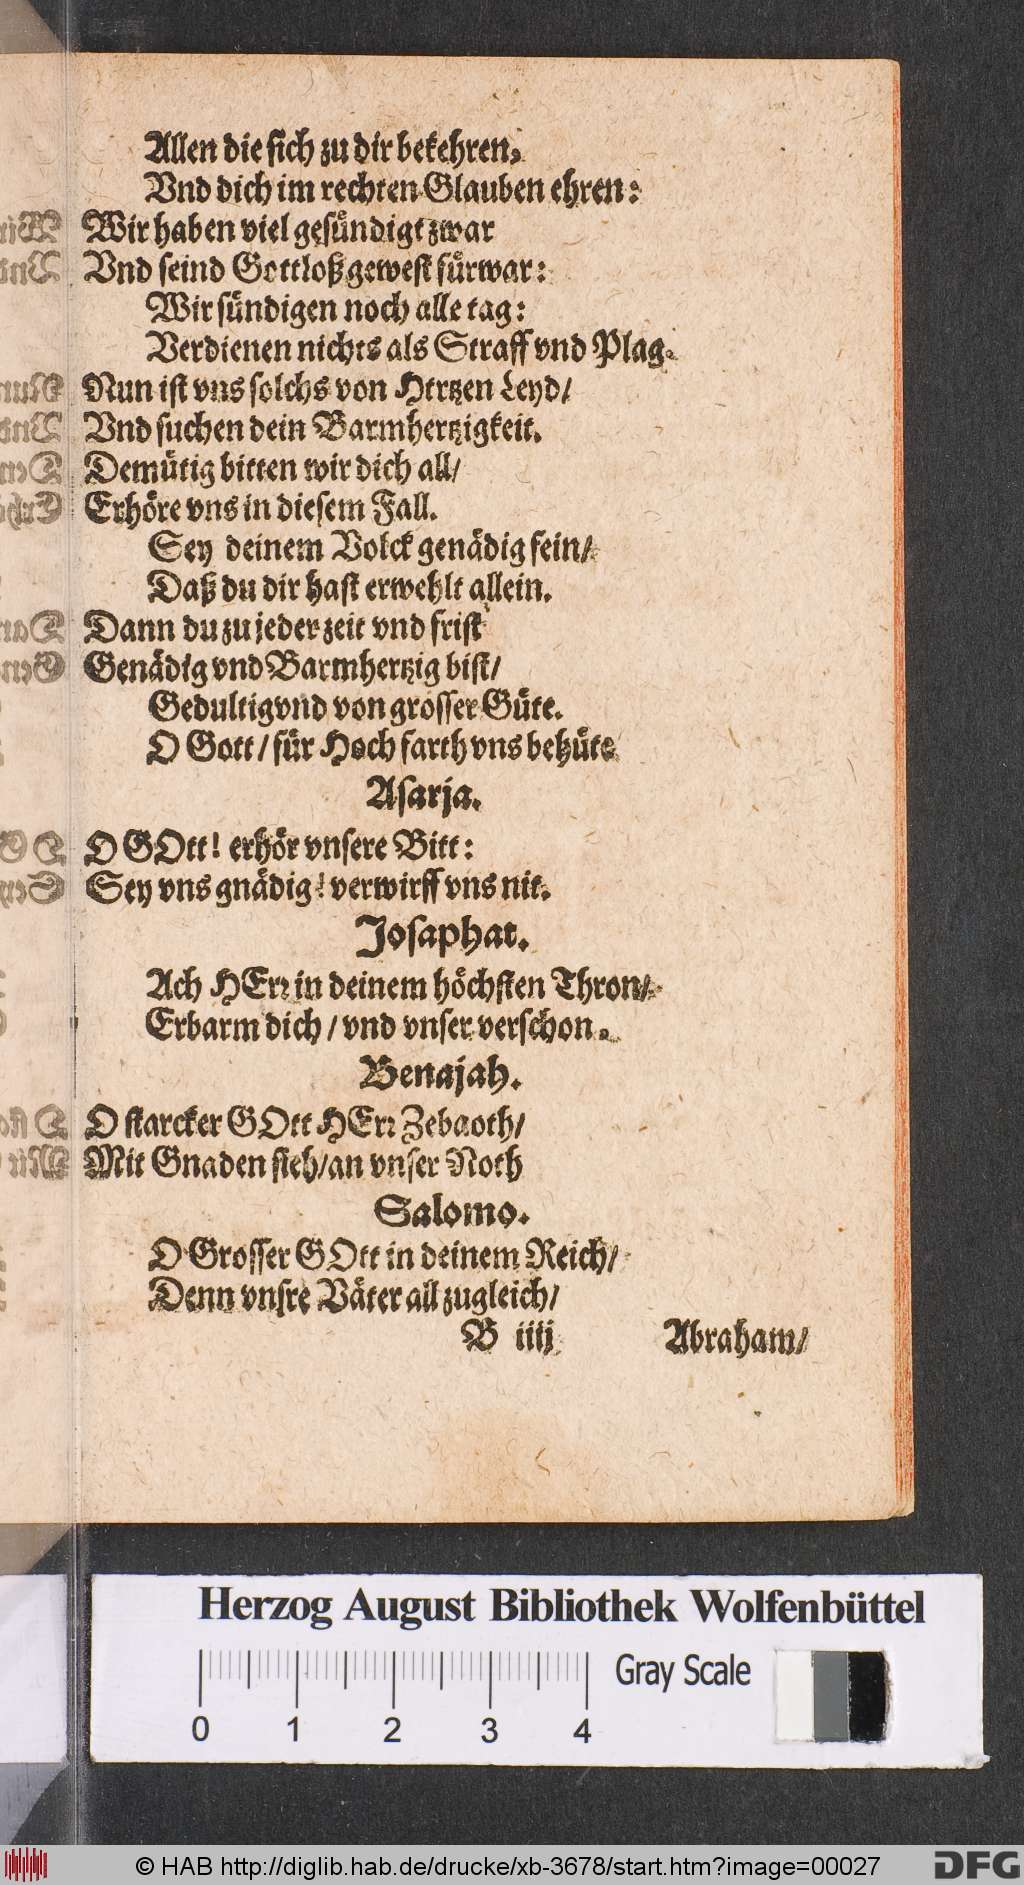 Allen die sich zu dir bekehren,
Vnd dich im rechten Glauben ehren:
Wir haben viel gesündigt zwar
Vnd seind Gottloß gewest fürwar:
Wir sündigen noch alle tag:
Verdienen nichts als Straff vnd Plag.
Nun ist vns solchs von Hertzen Leyd/
Vnd suchen dein Barmhertzigkeit.
Demütig bitten wir dich all/
Erhöre vns in diesem Fall.
Sey deinem Volck genädig fein/
Daß du dir hast erwehlt allein.
Dann du zu jeder zeit vnd frist
Genädig vnd Barmhertzig bist/
Gedultig vnd von grosser Güte.
O Gott/ für Hoch farth vns behüte
Asarja.
O GOtt! erhör vnsere Bitt:
Sey vns gnädig! verwirff vns nit.
Josaphat.
Ach HErr in deinem höchsten Thron/
Erbarm dich/ vnd vnser verschon.
Benajah.
O starcker GOtt HErr Zebaoth/
Mit Gnaden sieh/ an vnser Noth
Salomo.
O Grosser GOtt in deinem Reich/
Denn vnsre Väter all zugleich/
B iiij Abraham/
Herzog August Bibliothek Wolfenbüttel
Gray Scale
0 1 2 3 4
© HAB http://diglib.hab.de/drucke/xb-3678/start.htm?image=00027
DFG